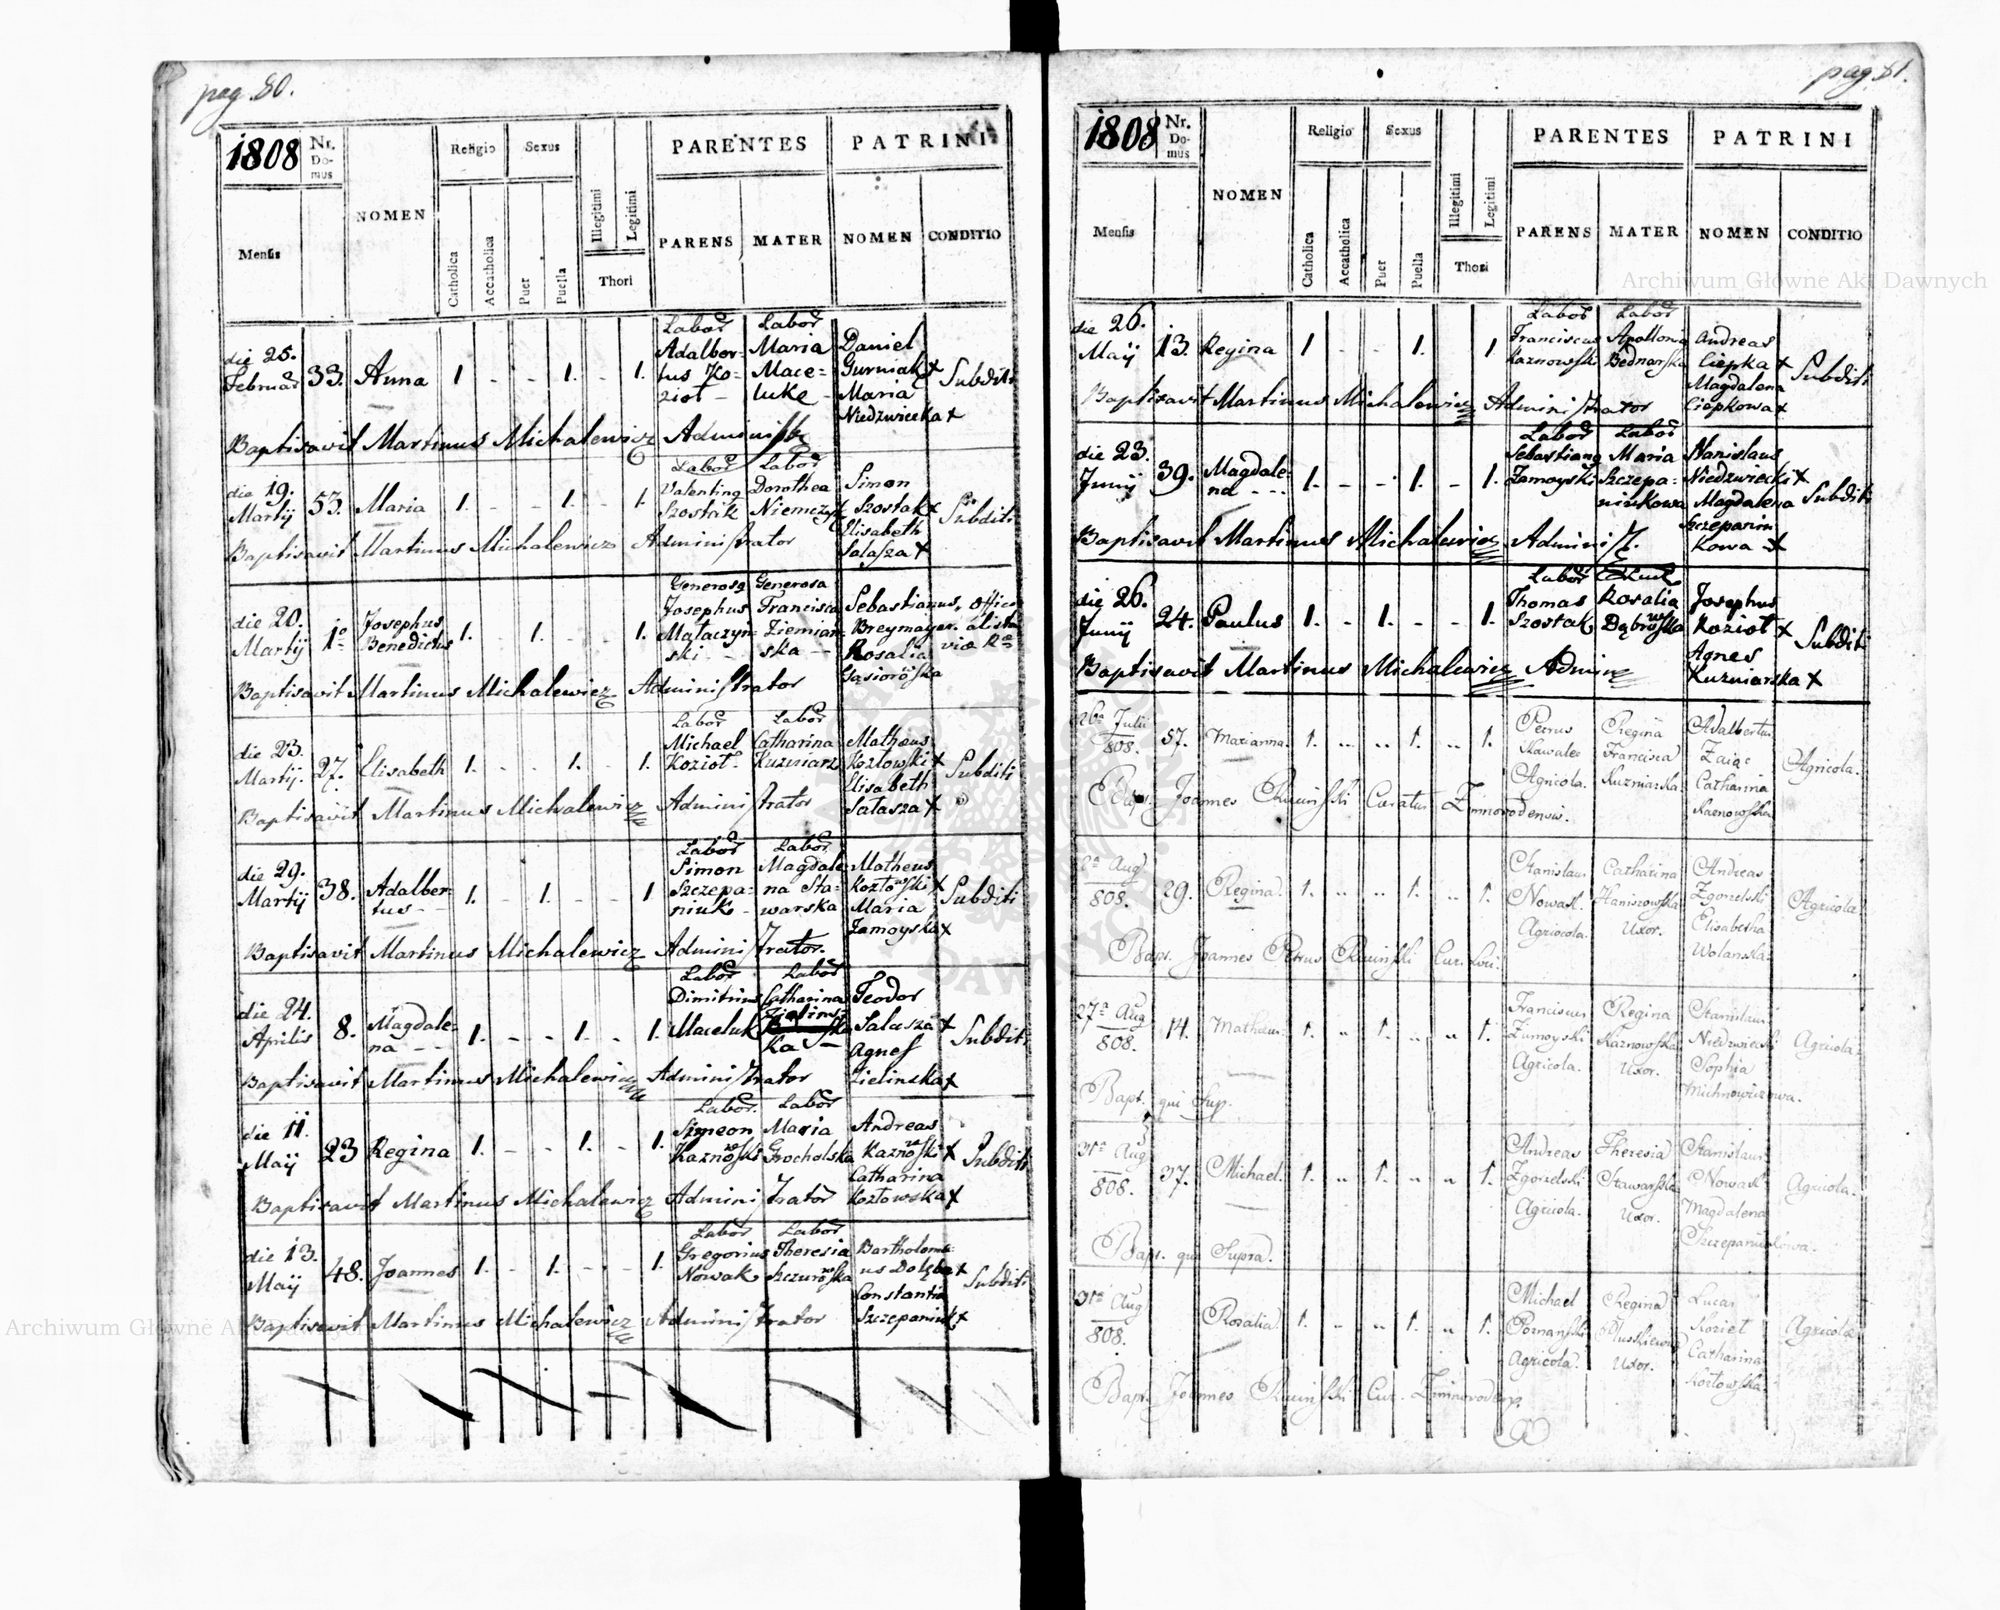 pag. 80.
1808 Nr. Domus NOMEN Religio Sexus Illegitimi Legitimi PARENTES PATRINI
Mensis Catholica Accatholica Puer Puella Thori PARENS MATER NOMEN CONDITIO
die 25. Februar 33. Anna 1 - - 1. - 1. Labor Adalbertus Kozioł Labor Maria Maceluke Daniel Gurniak + Maria Niedzwiecka + Subditi
Baptisavit Martinus Michalewicz
die 19. Martij 53. Maria 1. - - 1. - 1. Labor Valentinus Szostak Labor Dorothea Niemczyk Simon Szostak + Elisabeth Salasza + Subditi
Baptisavit Martinus Michalewicz Administrator
die 20. Martij 1o Josephus Benedictus 1. - 1. - - 1. Generosus Josephus Mataczynski Generosa Francisca Ziemianska Sebastianus Breymayer Rosalia Gąsiorowska
Baptisavit Martinus Michalewicz Administrator
die 23. Martij. 27. Elisabeth 1. - - 1. - 1. Labor Michael Kozioł Labor Catharina Kuzniarz Matheus Kozłowski + Elisabeth Sałasza + Subditi
Baptisavit Martinus Michalewicz Administrator
die 29. Martij 38. Adalbertus 1. - 1. - - 1 Labor Simon Szczepaniuk Labor Magdalena Stawarska Matheus Kozłowski + Maria Zamoyska + Subditi
Baptisavit Martinus Michalewicz Administrator.
die 24. Aprilis 8. Magdalena 1. - - 1. - 1. Labor Dimitrius Maceluk Labor Catharina Teodor Salasza + Agnes Zielinska + Subditi
Baptisavit Martinus Michalewicz Administrator
die 11. Maij 23 Regina 1. - - 1. - 1. Labor Szymeon Kaznowski Labor Maria Grocholska Andreas Kaznowski + Catharina Kozłowska + Subditi
Baptisavit Martinus Michalewicz Administrator
die 13. Maij 48. Joannes 1. - 1. - - 1. Labor Gregorius Nowak Labor Theresia Szczurowska Bartholomeus + Constantia Szczepaniuk + Subditi
Baptisavit Martinus Michalewicz Administrator
pag. 81.
1808 Nr. Domus NOMEN Religio Sexus Illegitimi Legitimi PARENTES PATRINI
Mensis Catholica Accatholica Puer Puella Thori PARENS MATER NOMEN CONDITIO
die 26. Maij 13. Regina 1 - - 1. 1 Labor Franciscus Kaznowski Labor Apollonia Bednarska Andreas Ciepka + Magdalena Ciepkowa + Subditi
Baptisavit Martinus Michalewicz Administrator
die 23. Junij 39. Magdalena 1. - - 1. - 1. Labor Sebastianus Zamoyski Labor Maria Szczepaniukowa Stanislaus Niedzwiecki + Magdalena Szczepaniukowa + Subditi
Baptisavit Martinus Michalewicz
die 26. Junij 24. Paulus 1. - 1. - - 1. Labor Thomas Szostak Rosalia Dąbrowska Josephus Kozioł + Agnes Kuzniarska + Subditi
Baptisavit Martinus Michalewicz
26a Julii 808. 57. Marianna. 1. 1. 1. Petrus Kowalec Agricola. Regina Francisca Kuzniarska Adalbertus Zaiąc Catharina Kaznowska Agricola.
Bap. Joannes Curatus
Aug 808. 29. Regina. 1. 1. 1. Stanislaus Nowak Agricola. Catharina Uxor. Andreas Zgorzelski Elisabetha Wolanska Agricola
Bap. Joannes Petrus
27a Aug 808. 14. 1. 1. 1. Franciscus Zamoyski Agricola. Regina Kaznowska Uxor. Stanislaus Niedzwiecki Sophia Michnowiczowa. Agricola.
Bapt. qui Sup.
31a Aug 808. 37. Michael. 1. 1. 1. Andreas Zgorzelski Agricola. Theresia Stawarska Uxor. Stanislaus Nowak Magdalena Szczepaniukowa. Agricola.
Bap. qui Supra.
31a Aug 808. Rosalia 1. 1. 1. Michael Poznanski Agricola. Regina Uxor. Lucas Kozieł Catharina Kozłowska Agricola
Bapt. Joannes Cur.
Archiwum Główne Akt Dawnych